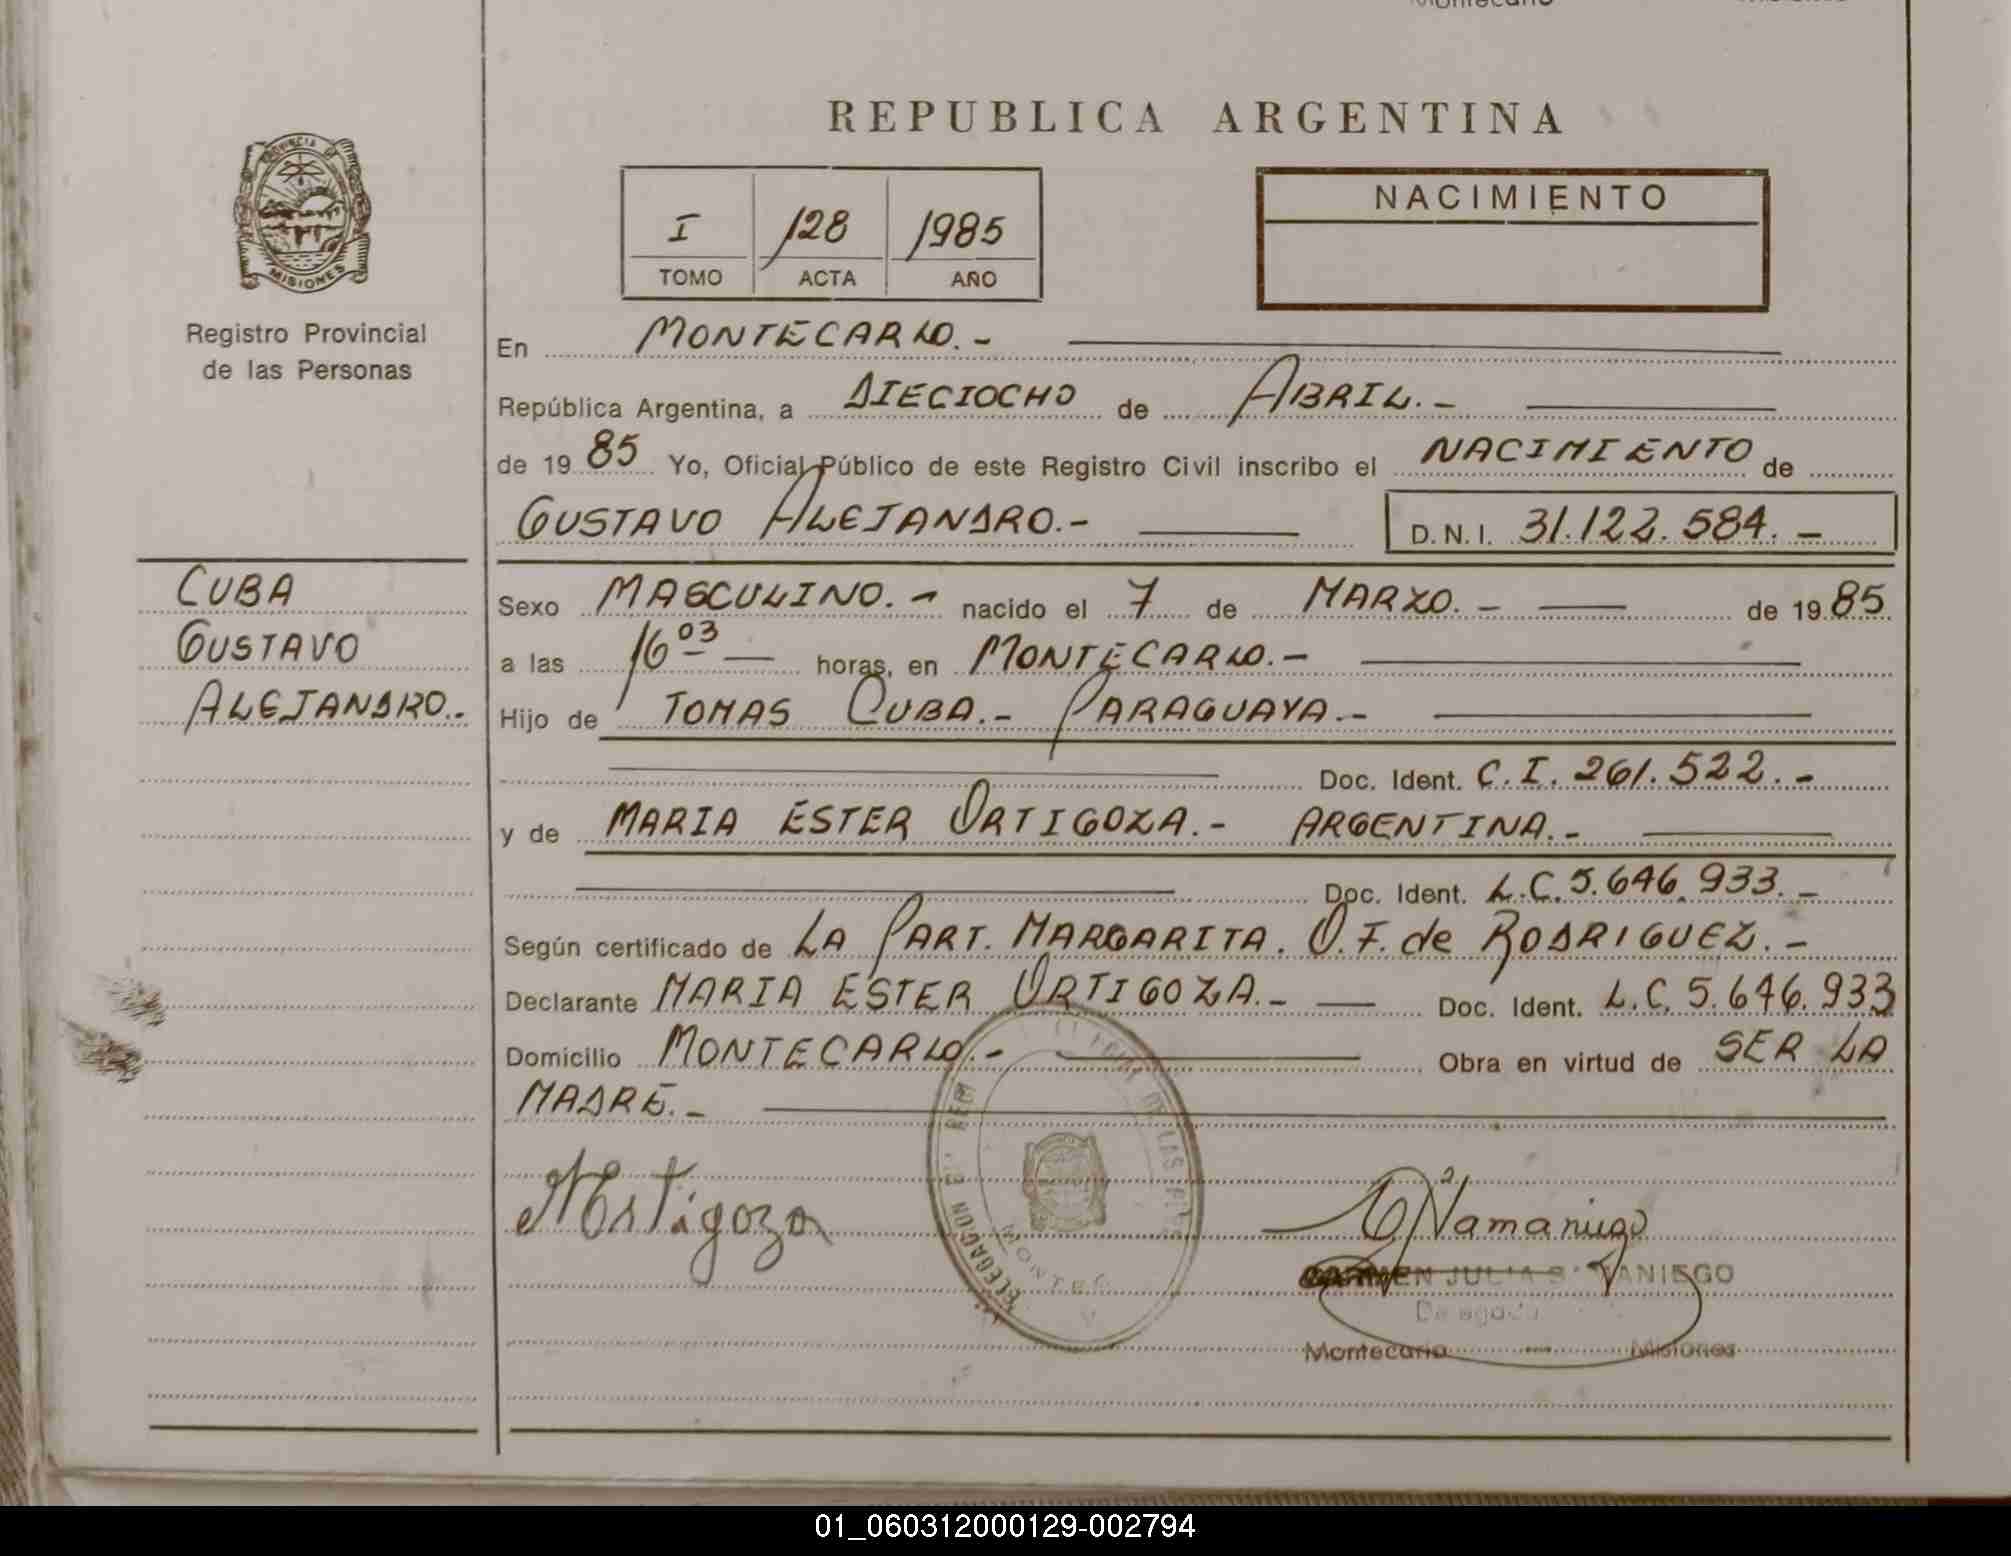 REPUBLICA ARGENTINA
PROVINCIA DE
MISIONES
Registro Provincial
de las Personas
I 128 1985
TOMO ACTA AÑO
NACIMIENTO
En MONTECARLO.-
República Argentina, a DIECIOCHO de ABRIL.-
de 19 85 Yo, Oficial Público de este Registro Civil inscribo el NACIMIENTO de
GUSTAVO ALEJANDRO.- D.N.I. 31.122.584.-
CUBA
GUSTAVO
ALEJANDRO.-
Sexo MASCULINO.- nacido el 7 de MARZO.- de 19 85
a las 16 03 horas, en MONTECARLO.-
Hijo de TOMAS CUBA.- PARAGUAYA.-
Doc. Ident. C.I. 261.522.-
y de MARIA ESTER ORTIGOZA.- ARGENTINA.-
Doc. Ident. L.C. 5.646.933.-
Según certificado de LA PART. MARGARITA. O.F. de RODRIGUEZ.-
Declarante MARIA ESTER ORTIGOZA.- Doc. Ident. L.C. 5.646.933
Domicilio MONTECARLO.- Obra en virtud de SER LA
MADRE.-
MOrtigoza
CARMEN JULIA SAMANIEGO
Delegada
Montecarlo Misiones
01_060312000129-002794